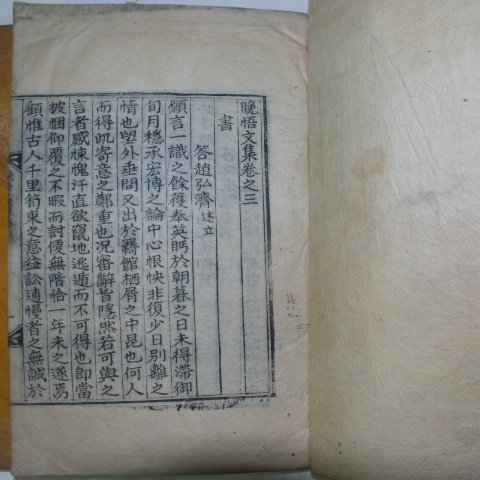 晩悟文集卷之三
書
答趙弘濟 述立
願言一識之餘獲奉英眄於朝暮之日未得滯御
旬月穩承宏博之論中心恨怏非復少日別離之
情也望外垂問又出於羇館栖屑之中昆也何人
而得此寄意之鄭重也况審辭旨隱然若可與之
言者感悚愧汗直欲竄地逃遁而不可得也卽當
披悃仰覆之不暇而討便無階恰一年未之遂焉
顧惟古人千里命東之意益訟逋慢者之無誠於